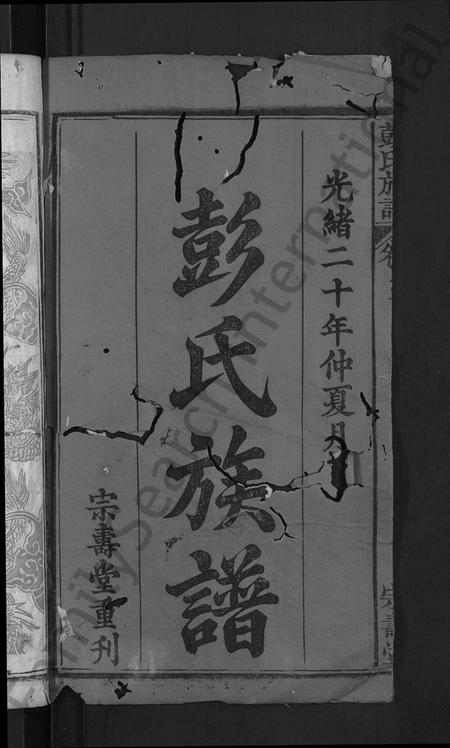 光緒二十年仲夏月
彭氏族譜
宗壽堂重刊
彭氏族譜
宗壽堂
FamilySearch International